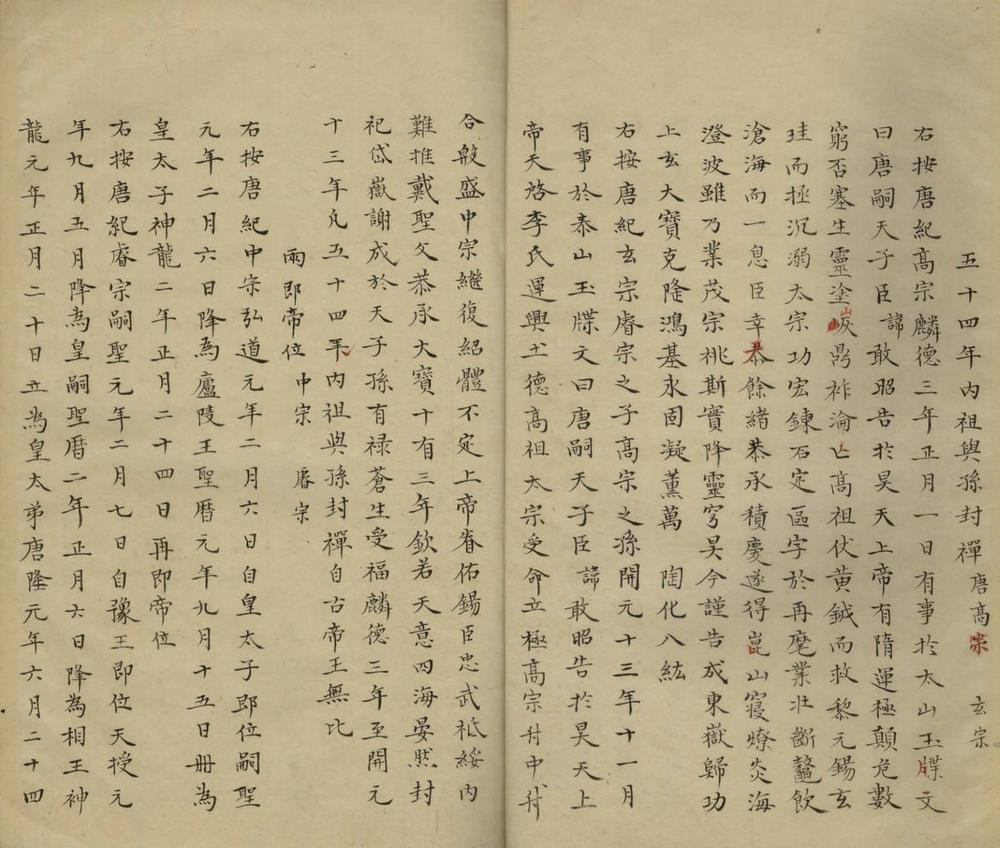 五十四年內祖與孫封禪 唐高宗 玄宗
右按唐紀高宗麟德三年正月一日有事於太山玉牒文
曰唐嗣天子臣諱敢昭告於昊天上帝有隋運極顛危數
窮否塞生靈塗炭鼎祚淪亡高祖伏黄鉞而救黎元錫玄
珪而拯沉溺太宗功宏鍊石定區宇於再麾業壯斷鼇飲
滄海而一息臣幸忝餘緒恭承積慶遂得崑山寢燎炎海
澄波雖乃業茂宗祧斯實降靈穹昊今謹告成東嶽歸功
上玄大寶克隆鴻基永固凝薰萬 陶化八紘
右按唐紀玄宗睿宗之子高宗之孫開元十三年十一月
有事於泰山玉牒文曰唐嗣天子臣諱敢昭告於昊天上
帝天啓李氏運興土德高祖太宗受命立極高宗升中
合殷盛中宗繼復紹體不定上帝眷佑錫臣忠武祗綏內
難推戴聖父恭承大寶十有三年欽若天意四海晏然封
祀岱嶽謝成於天子孫有禄蒼生受福麟德三年至開元
十三年凡五十四年內祖與孫封禪自古帝王無比
兩即帝位 中宗 睿宗
右按唐紀中宗弘道元年二月六日自皇太子即位嗣聖
元年二月六日降為廬陵王聖曆元年九月十五日冊為
皇太子神龍二年正月二十四日再即帝位
右按唐紀睿宗嗣聖元年二月七日自豫王即位天授元
年九月五月降為皇嗣聖曆二年正月六日降為相王神
龍元年正月二十日立為皇太弟唐隆元年六月二十四